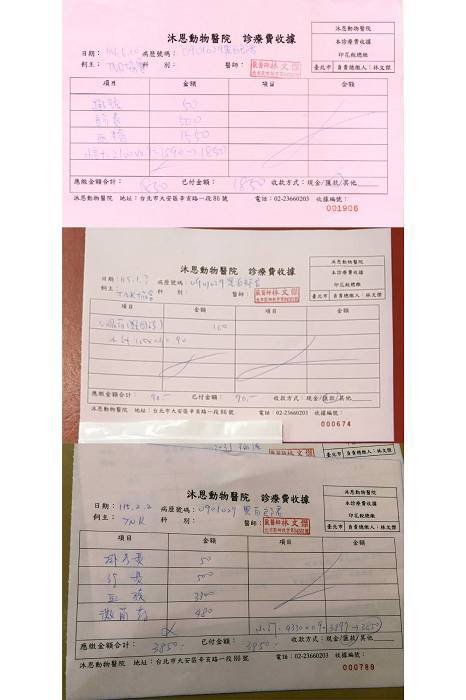 沐恩動物醫院　診療費收據
沐恩動物醫院
本診療費收據
印花稅總繳
臺北市 負責總繳人：林文傑
日期： 病歷號碼：0901029
飼主： 科　別： 醫師： 林文傑
項目 金額 項目 金額
掛號 50
500
1350
應繳金額合計：1850 已付金額：1850 收款方式：現金/匯款/其他
沐恩動物醫院　地址：台北市大安區辛亥路一段86號　電話：02-23660203　收據編號：
001906
沐恩動物醫院　診療費收據
沐恩動物醫院
本診療費收據
印花稅總繳
臺北市 負責總繳人：林文傑
日期：115.1.7 病歷號碼：0901029
飼主： 科　別： 醫師： 林文傑
項目 金額 項目 金額
應繳金額合計：90.- 已付金額：90.- 收款方式：現金/匯款/其他
沐恩動物醫院　地址：台北市大安區辛亥路一段86號　電話：02-23660203　收據編號：
000674
沐恩動物醫院　診療費收據
沐恩動物醫院
本診療費收據
印花稅總繳
臺北市 負責總繳人：林文傑
日期：115.2.2 病歷號碼：0901029
飼主：TNR 科　別： 醫師： 林文傑
項目 金額 項目 金額
掛號費 50
500
480
應繳金額合計：3850.- 已付金額：3850.- 收款方式：現金/匯款/其他
沐恩動物醫院　地址：台北市大安區辛亥路一段86號　電話：02-23660203　收據編號：
000789